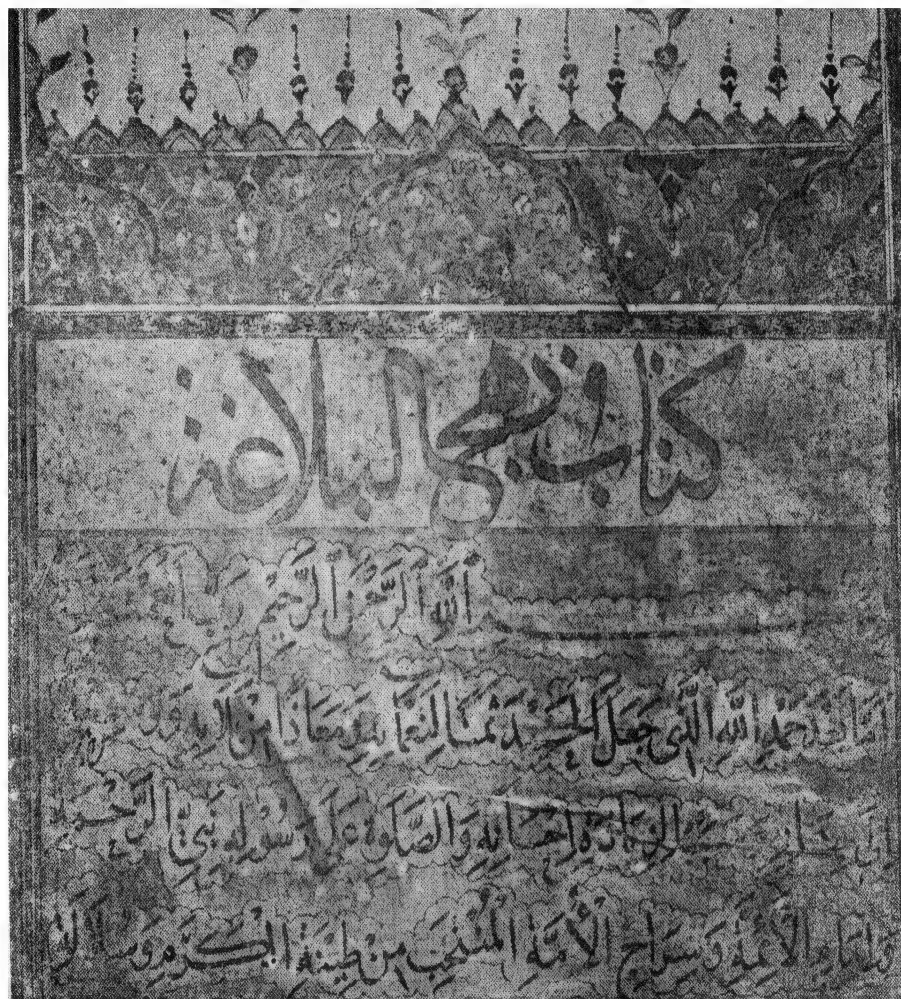 كتاب نهج البلاغة
بسم الله الرحمن الرحيم رب
اما بعد حمد الله الذى جعل الحمد ثمنا لنعمائه ومعاذا من بلائه
لزيادة احسانه والصلوة على رسوله نبى الرحمة
وامام الأئمة وسراج الأمة المنتخب من طينة الكرم